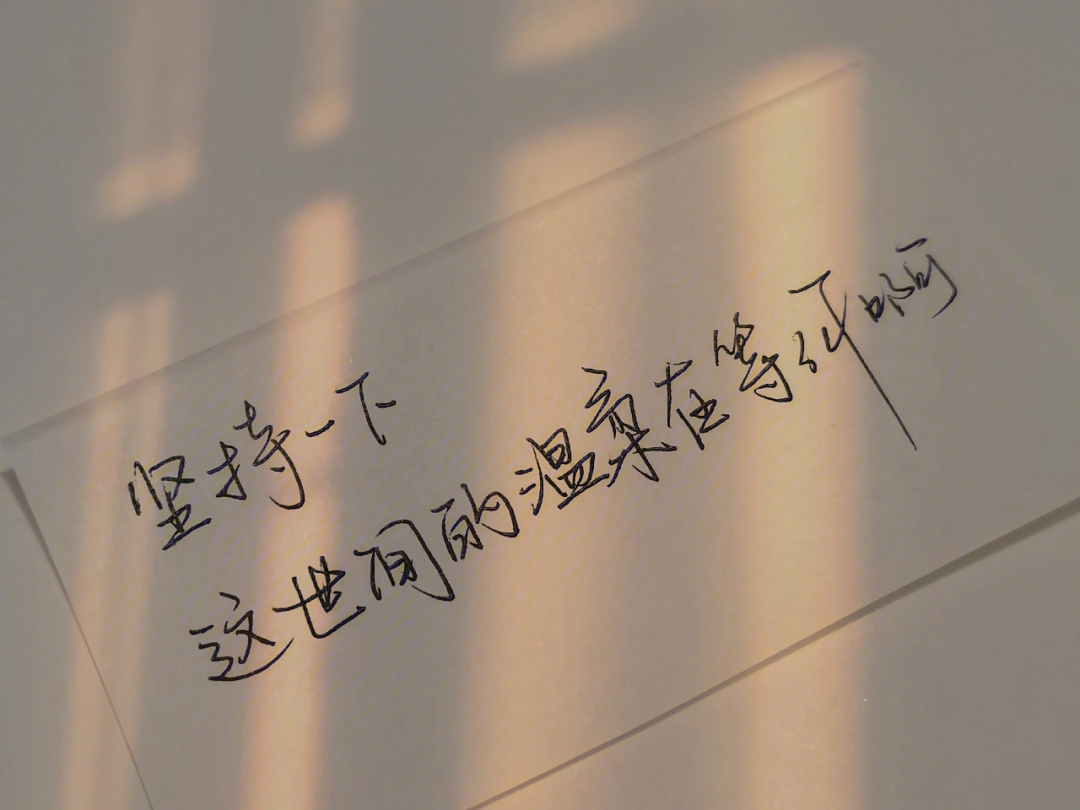 坚持一下
这世间的温柔在等啊